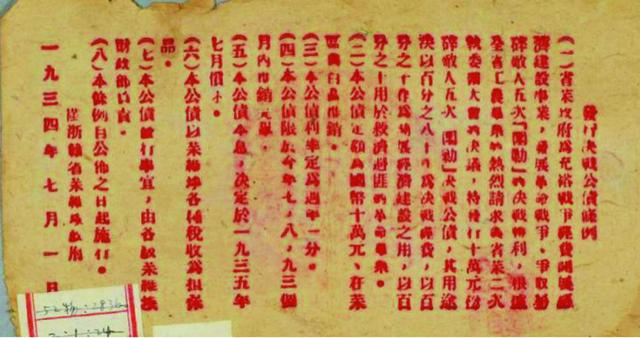 發行決戰公債條例
（一）省蘇政府爲充裕戰爭經費開展經
濟建設事業，發展革命戰爭，爭取粉
碎敵人五次「圍勦」的決戰勝利，根據
全省工農羣衆的熱烈請求與省蘇二次
執委擴大會的決議，特發行十萬元粉
碎敵人五次「圍勦」決戰公債，其用途
決以百分之八十作爲決戰經費，以百
分之十作爲發展經濟建設之用，以百
分之十用於救濟避匪的革命羣衆。
（二）本公債定額爲國幣十萬元、在蘇
區與白區推銷。
（三）本公債利率定爲週年一分。
（四）本公債限於今年七，八，九三個
月內推銷完畢。
（五）本公債本息，決定於一九三五年
七月償還。
（六）本公債以蘇維埃各種稅收爲担保
品。
（七）本公債發行事宜，由各級蘇維埃
財政部負責。
（八）本條例自公佈之日起施行。
閩浙贛省蘇維埃政府
一九三四年七月一日